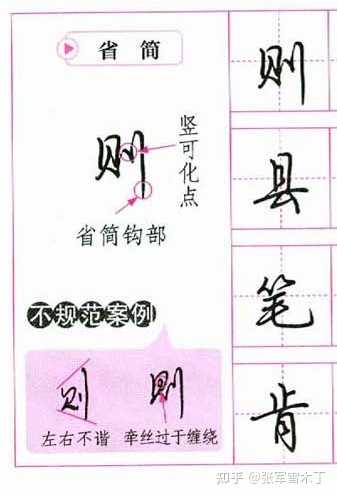 省简
则
竖可化点
省简钩部
不规范案例
则 则
左右不谐 牵丝过于缠绕
则
县
笔
肯
知乎 @张军雷木丁